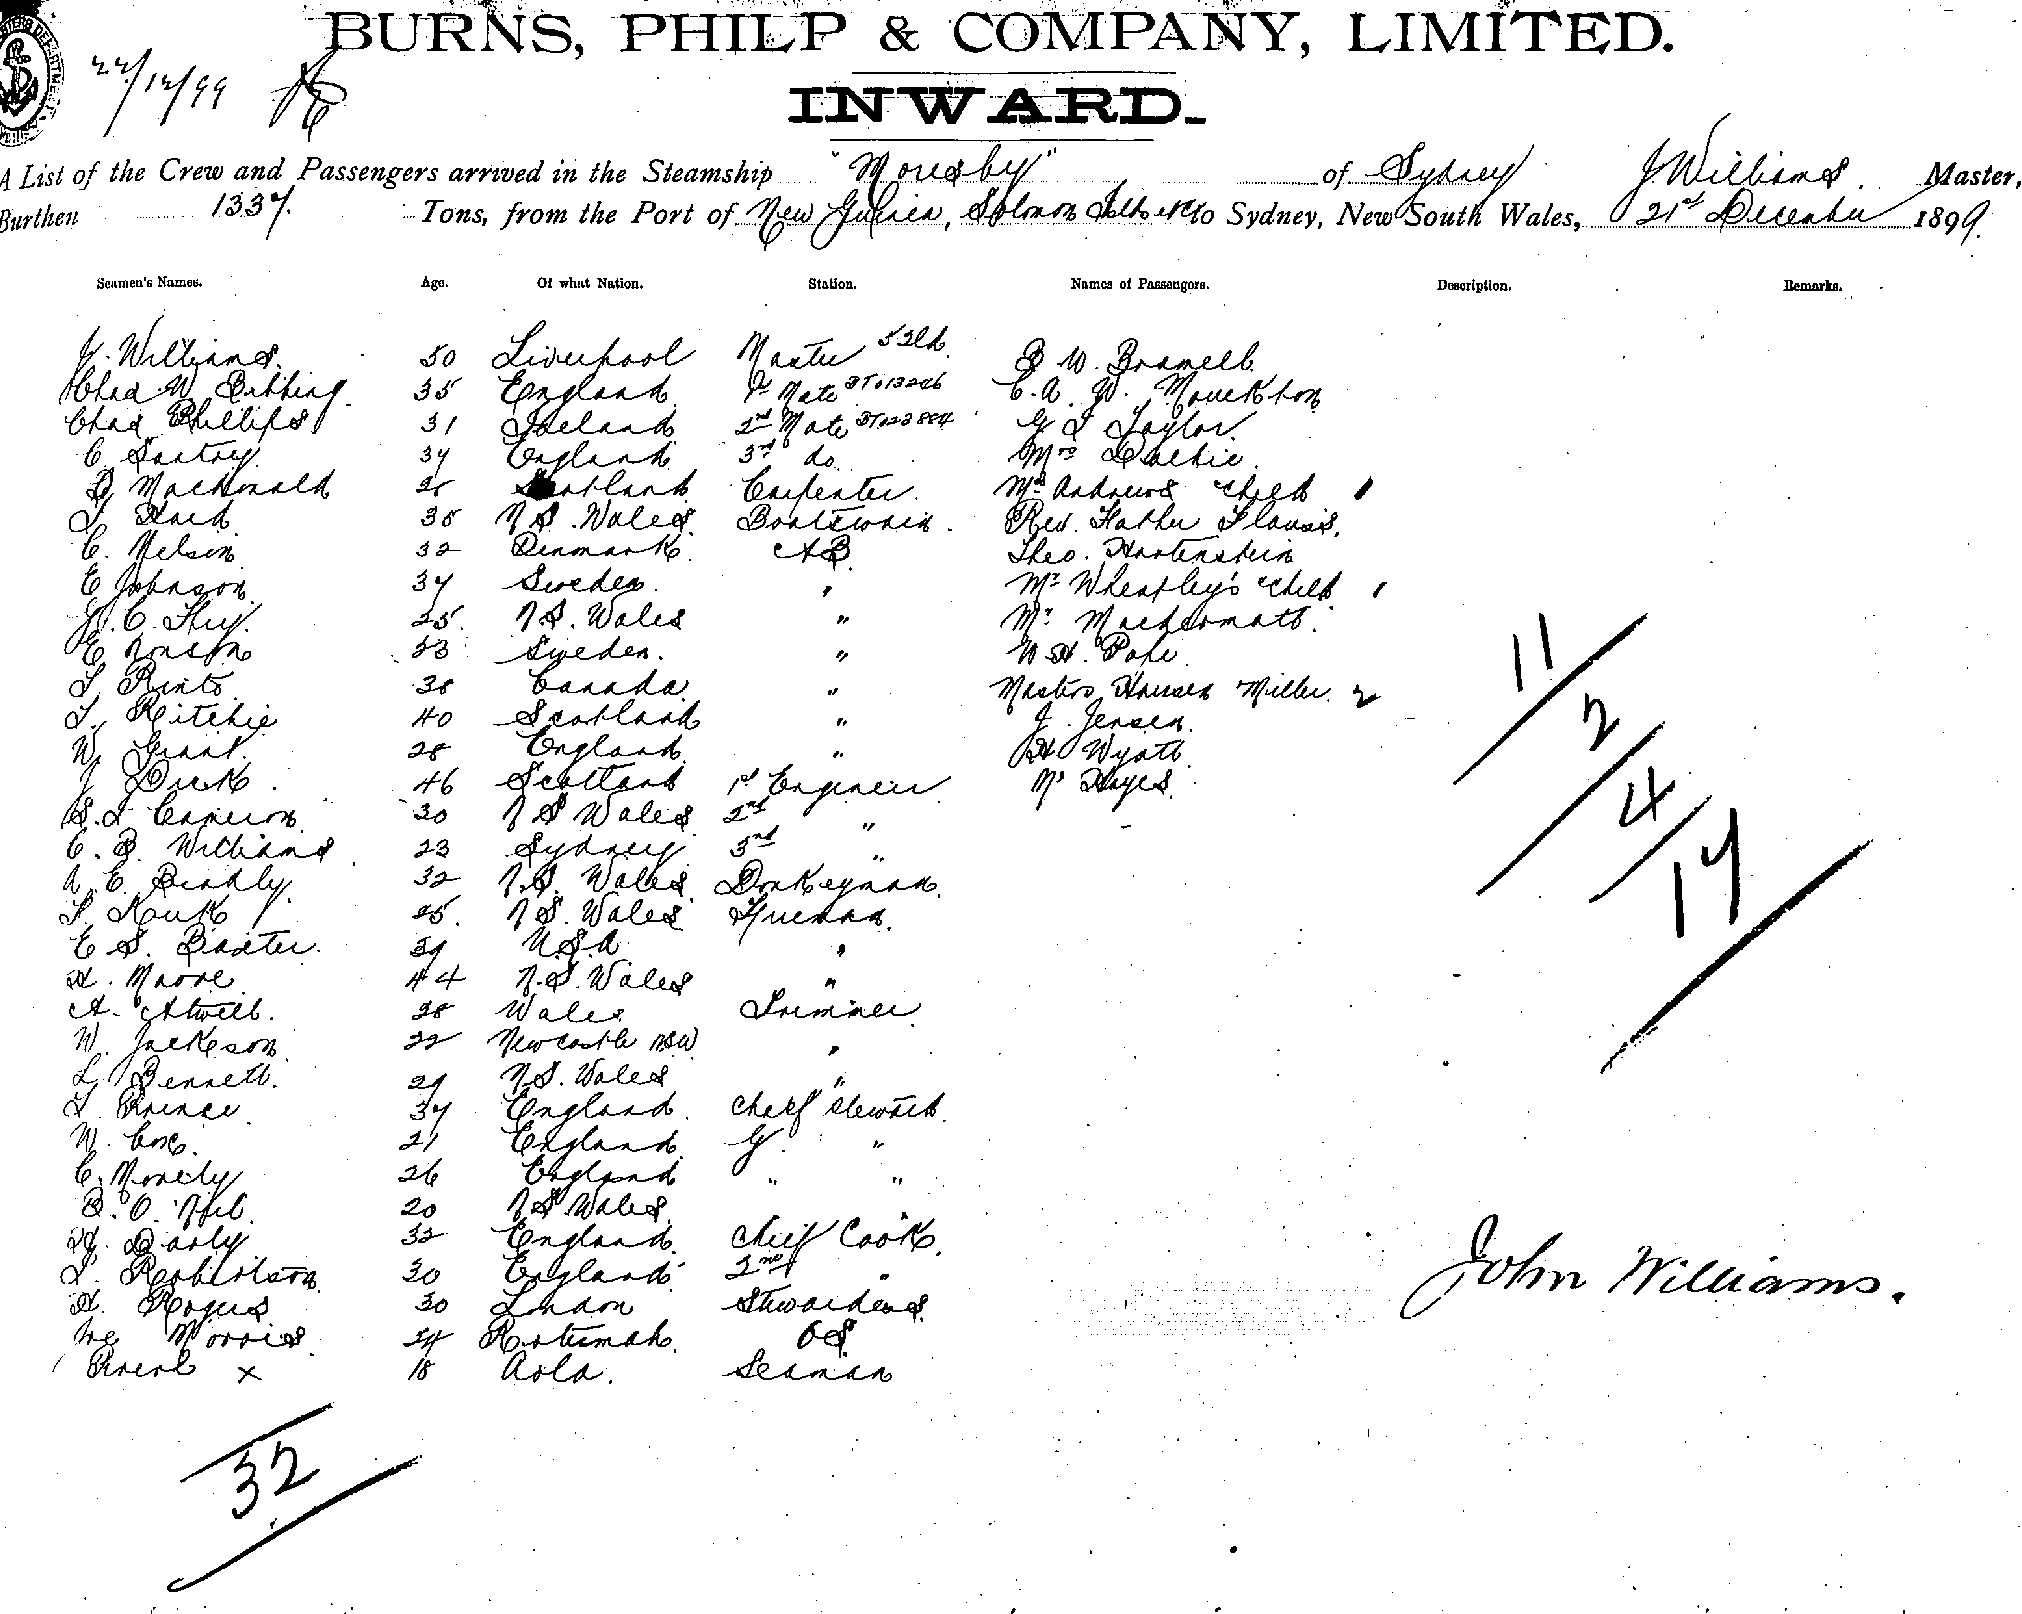 BURNS, PHILP & COMPANY, LIMITED.
22/12/99
INWARD.
A List of the Crew and Passengers arrived in the Steamship "Moresby" of Sydney J Williams. Master,
Burthen 1337. Tons, from the Port of New Guinea, Solomon to Sydney, New South Wales, 21st December 1899.
Seamen's Names. Age. Of what Nation. Station. Names of Passengers. Description. Remarks.
J. Williams. 50 Liverpool Master B W. Bramell.
Chas N. 35 England Mate C. A. W. Monckton
Chas Phillips 31 Iceland 2nd Mate G I Taylor.
C 37 England 3rd do Mrs
D Macdonald Scotland Carpenter. Mrs Andrews child
35 N S. Wales. Boatswain. Rev. Father
C. Nelson 32 Denmark. AB. Theo. Hartenstein
E Johnson 37 Sweden. " Mr Wheatley's child
J. C. 25. N S. Wales " Mr.
E 23 Sweden. " W. H. Pope
38 Canada " Masters Hansen Miller. 2
T. Ritchie 40 Scotland " J. Jensen.
W. Grant. 28 England. " H Wyatt.
J Dick. 46 Scotland 1st Engineer Mr Hayes.
S. I Cameron. 30 N S Wales. 2nd "
C. B. Williams 23 Sydney 3rd "
A. E. 32 N. S. Wales. Donkeyman.
25. N S. Wales Fireman.
E S. Baxter. 39 U.S.A "
H. Moore. 44 N. S. Wales "
A. Atwell. 28 Wales Trimmer.
W. Jackson. 22 Newcastle NSW "
L. Bennett. 29 N S. Wales "
T Prince 37 England. Chief Steward.
W. Cox. 21 England. "
C. 26 England " "
20 N S Wales. "
H. 32 England. Chief Cook.
T. Robertson. 30 England 2nd "
H. Rogers 30 London Stewardess.
Morris. Rotumah. OS
x 18 Aola. Seaman
11
2
4
17
32
John Williams.